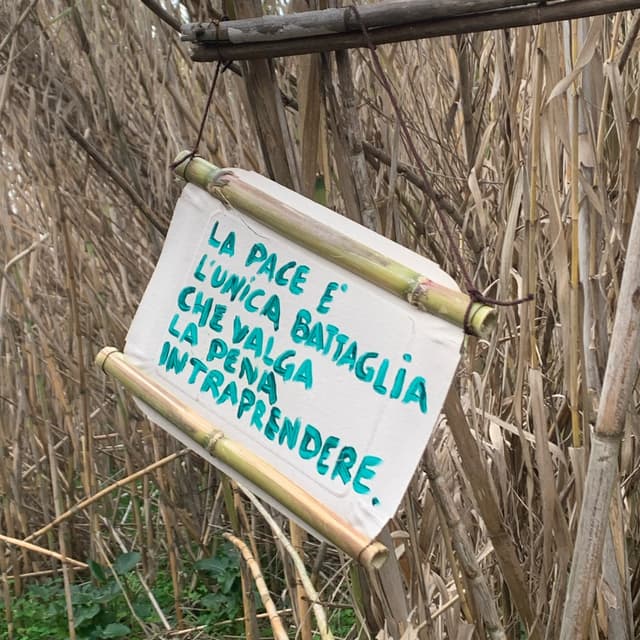 LA PACE E'
L'UNICA BATTAGLIA
CHE VALGA
LA PENA
INTRAPRENDERE.